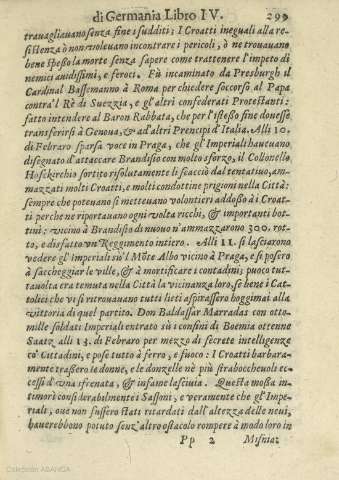 di Germania Libro IV. 299
trauagliauano senza fine i sudditi; I Croatti ineguali alla re-
sistenza ò non voleuano incontrare i pericoli, ò ne trouauano
bene spesso la morte senza sapere come trattenere l'impeto di
nemici auidissimi, e feroci. Fù incaminato da Presburgh il
Cardinal Bassemanno à Roma per chiedere soccorso al Papa
contra'l Rè di Suezzia, e gl'altri confederati Protestanti:
fatto intendere al Baron Rabbata, che per l'istesso fine douesse
transferirsi à Genoua, & ad altri Prencipi d'Italia. Alli 10.
di Febraro sparsa voce in Praga, che gl'Imperiali haueuano
disegnato d'attaccare Brandisio con molto sforzo, il Collonello
Hofckirchio sortito risolutamente li scacciò dal tentatiuo, am-
mazzati molti Croatti, e molti condottine prigioni nella Città:
sempre che poteuano si metteuano volontieri addosso à i Croat-
ti perche ne riportauano ogni volta ricchi, & importanti bot-
tini: vicino à Brandisio di nuouo n'ammazzarono 300. rot-
to, e disfatto vn Reggimento intiero. Alli 11. si lasciarono
vedere gl'Imperiali sù'l Mõte Albo vicino à Praga, e si posero
à saccheggiar le ville, & à mortificare i contadini; puoco tut-
tauolta era temuta nella Città la vicinanza loro, se bene i Cat-
tolici che vi si ritrouauano tutti lieti aspirassero hoggimai alla
vittoria di quel partito. Don Baldassar Marradas con otto-
mille soldati Imperiali entrato sù i confini di Boemia ottenne
Saatz alli 13. di Febraro per mezzo di secrete intelligenze
co' Cittadini, e pose tutto à ferro, e fuoco: I Croatti barbara-
mente trassero le donne, e le donzelle nè più straboccheuoli ec-
cessi d'vna sfrenata, & infame lasciuia. Questa mossa in-
timorì considerabilmente i Sassoni, e veramente che gl'Impe-
riali, oue non fussero stati ritardati dall'altezza delle neui,
hauerebbono potuto senz'altro ostacolo rompere à modo loro in
Pp 2 Misnia;
Colección ABANCA